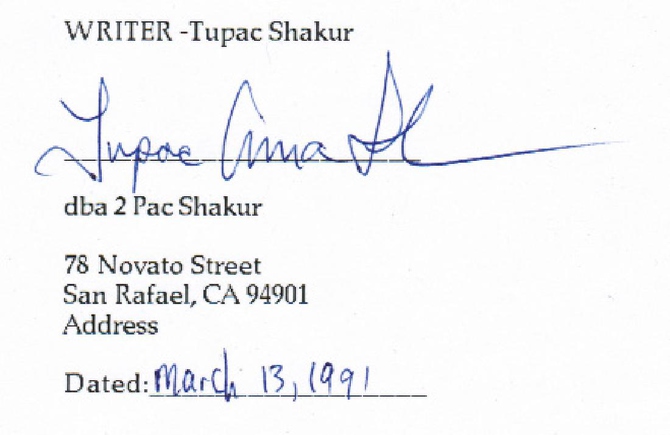 WRITER -Tupac Shakur
Tupac Ama Sh
dba 2 Pac Shakur
78 Novato Street
San Rafael, CA 94901
Address
Dated: March 13, 1991